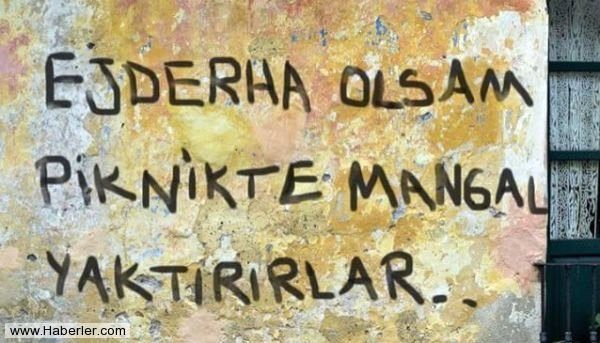 EJDERHA OLSAM
PİKNİKTE MANGAL
YAKTIRIRLAR..
www.Haberler.com